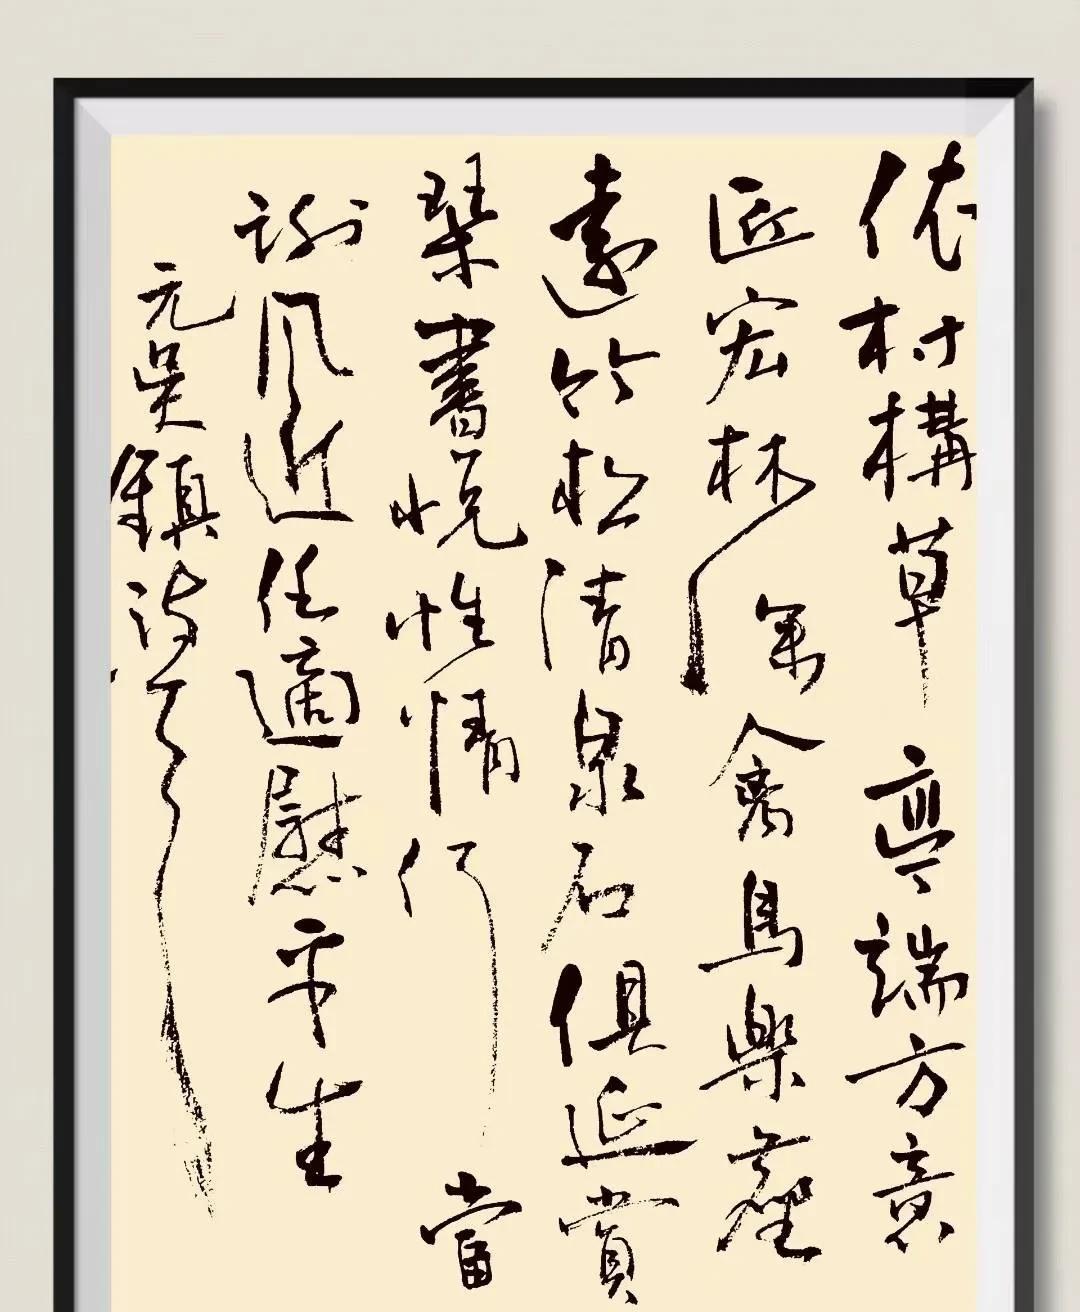 依村構草亭端方意
匠宏林深禽鳥樂塵
遠竹松清泉石俱延賞
琹書悅性情何當
謝凡近任適慰平生
元吳鎮詩